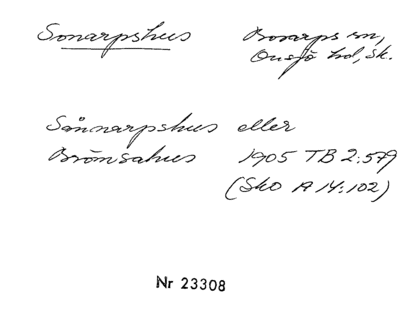 Sonarpshus Bosarps sn,
Onsjö hd, Sk.
Sånnarpshus eller
Brönsahus 1905 TB 2:579
(SkO A 14:102)
Nr 23308